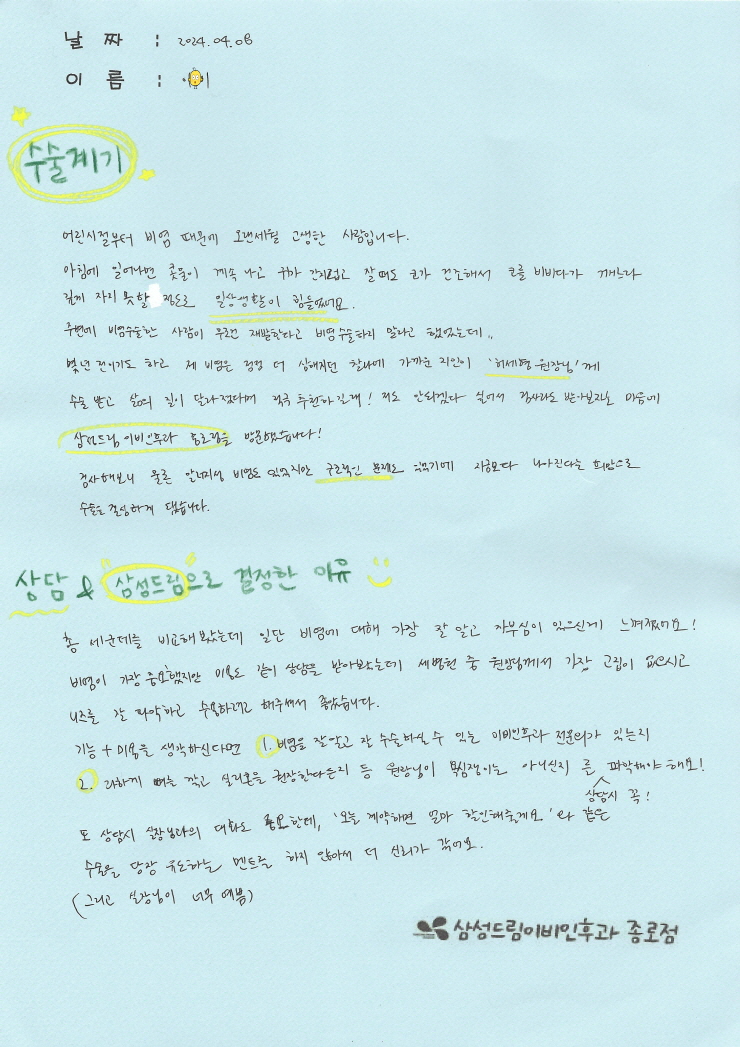 날 짜 : 2024.04.08
이 름 : 이
수술계기
어린시절부터 비염 때문에 오랜세월 고생한 사람입니다.
아침에 일어나면 콧물이 계속 나고 귀가 간지럽고 잘때도 코가 건조해서 코를 비비다가 깨느라
깊게 자지 못할 정도로 일상생활이 힘들었어요.
주변에 비염수술한 사람이 무조건 재발한다고 비염수술하지 말라고 했었는데..
몇년 전이기도 하고 제 비염은 점점 더 심해지던 찰나에 가까운 지인이 '허세형 원장님'께
수술 받고 삶의 질이 달라졌다며 적극 추천하길래! 저도 안되겠다 싶어서 검사라도 받아보자는 마음에
삼성드림이비인후과 종로점을 방문했습니다!
검사해보니 물론 알러지성 비염도 있었지만 구조적인 문제도 있었기에 지금보다 나아진다는 희망으로
수술을 결심하게 됐습니다.
상담 & 삼성드림으로 결정한 이유
총 세군데를 비교해봤는데 일단 비염에 대해 가장 잘 알고 자부심이 있으신게 느껴졌어요!
비염이 가장 중요했지만 미용도 같이 상담을 받아봤는데 세병원 중 원장님께서 가장 고집이 없으시고
니즈를 잘 파악하고 수용하려고 해주셔서 좋았습니다.
기능 + 미용을 생각하신다면 1. 비염을 잘알고 잘 수술하실 수 있는 이비인후과 전문의가 있는지
2. 과하게 뼈를 깎고 실리콘을 권장한다든지 등 원장님이 욕심쟁이는 아니신지 를 파악해야 해요!
상담시 꼭!
또 상담시 실장님과의 대화도 중요한데, '오늘 계약하면 얼마 할인해줄게요'와 같은
수술을 당장 유도하는 멘트를 하지 않아서 더 신뢰가 갔어요.
(그리고 실장님이 너무 예쁨)
삼성드림이비인후과 종로점